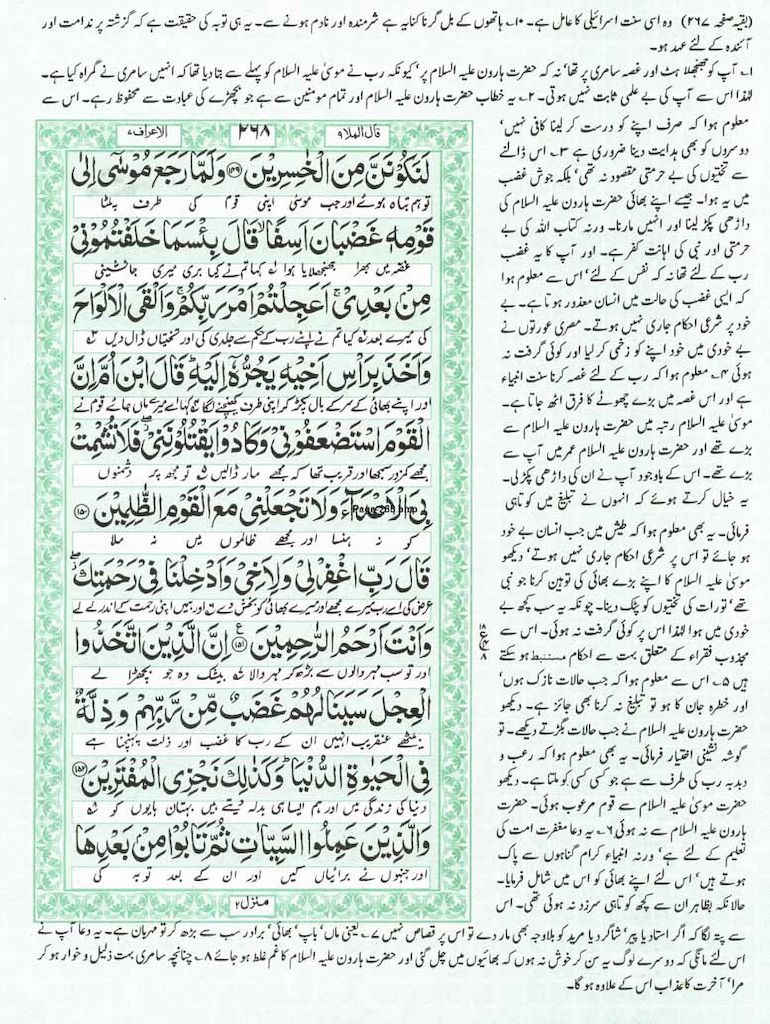 (بقیہ صفحہ ۲۶۷) وہ اسی سنت اسرائیلی کا عامل ہے۔ ۱۰۔ ہاتھوں کے بل گرنا کنایہ ہے شرمندہ اور نادم ہونے سے۔ یہ ہی توبہ کی حقیقت ہے کہ گزشتہ پر ندامت اور
آئندہ کے لئے عہد ہو۔
۱۔ آپ کو جھنجھلاہٹ اور غصہ سامری پر تھا' نہ کہ حضرت ہارون علیہ السلام پر' کیونکہ رب نے موسیٰ علیہ السلام کو پہلے سے بتا دیا تھا کہ انہیں سامری نے گمراہ کیا ہے۔
لہٰذا اس سے آپ کی بے علمی ثابت نہیں ہوتی۔ ۲۔ یہ خطاب حضرت ہارون علیہ السلام اور تمام مومنین سے ہے جو بچھڑے کی عبادت سے محفوظ رہے۔ اس سے
معلوم ہوا کہ صرف اپنے کو درست کر لینا کافی نہیں'
دوسروں کو بھی ہدایت دینا ضروری ہے ۳۔ اس ڈالنے
سے تختیوں کی بے حرمتی مقصود نہ تھی' بلکہ جوش غضب
میں یہ ہوا۔ جیسے اپنے بھائی حضرت ہارون علیہ السلام کی
داڑھی پکڑ لینا اور انہیں مارنا۔ ورنہ کتاب اللہ کی بے
حرمتی اور نبی کی اہانت کفر ہے۔ اور آپ کا یہ غضب
رب کے لئے تھا نہ کہ نفس کے لئے' اس سے معلوم ہوا
کہ ایسی غضب کی حالت میں انسان معذور ہوتا ہے۔ بے
خود پر شرعی احکام جاری نہیں ہوتے۔ مصری عورتوں نے
بے خودی میں خود اپنے کو زخمی کر لیا اور کوئی گرفت نہ
ہوئی ۴۔ معلوم ہوا کہ رب کے لئے غصہ کرنا سنت انبیاء
ہے اور اس غصہ میں بڑے چھوٹے کا فرق اٹھ جاتا ہے۔
موسیٰ علیہ السلام رتبہ میں حضرت ہارون علیہ السلام سے
بڑے تھے اور حضرت ہارون علیہ السلام عمر میں آپ سے
بڑے تھے۔ اس کے باوجود آپ نے ان کی داڑھی پکڑ لی۔
یہ خیال کرتے ہوئے کہ انہوں نے تبلیغ میں کوتاہی
فرمائی۔ یہ بھی معلوم ہوا کہ طیش میں جب انسان بے خود
ہو جائے تو اس پر شرعی احکام جاری نہیں ہوتے' دیکھو
موسیٰ علیہ السلام کا اپنے بڑے بھائی کی توہین کرنا جو نبی
تھے' تورات کی تختیوں کو پٹک دینا۔ چونکہ یہ سب کچھ بے
خودی میں ہوا لہٰذا اس پر کوئی گرفت نہ ہوئی۔ اس سے
مجذوب فقراء کے متعلق بہت سے احکام مستنبط ہو سکتے
ہیں ۵۔ اس سے معلوم ہوا کہ جب حالات نازک ہوں'
اور خطرہ جان کا ہو تو تبلیغ نہ کرنا بھی جائز ہے۔ دیکھو
حضرت ہارون علیہ السلام نے جب حالات بگڑتے دیکھے۔ تو
گوشہ نشینی اختیار فرمائی۔ یہ بھی معلوم ہوا کہ رعب و
دبدبہ رب کی طرف سے ہے جو کسی کسی کو ملتا ہے۔ دیکھو
حضرت موسیٰ علیہ السلام سے قوم مرعوب ہوئی۔ حضرت
ہارون علیہ السلام سے نہ ہوئی ۶۔ یہ دعا مغفرت امت کی
تعلیم کے لئے ہے' ورنہ انبیاء کرام گناہوں سے پاک
ہوتے ہیں' اس لئے اپنے بھائی کو اس میں شامل فرمایا۔
حالانکہ بظاہر ان سے کچھ کوتاہی سرزد نہ ہوئی تھی۔ اس
قال الملا۹ ۲۶۸ الاعراف۷
لَنَكُوْنَنَّ مِنَ الْخٰسِرِیْنَ ﴿۱۴۹﴾ وَلَمَّا رَجَعَ مُوْسٰۤى اِلٰى
تو ہم تباہ ہوئے اور جب موسیٰ اپنی قوم کی طرف پلٹا
قَوْمِهٖ غَضْبَانَ اَسِفًا ۙ قَالَ بِئْسَمَا خَلَفْتُمُوْنِیْ
غصہ میں بھرا جھنجھلایا ہوا کہا تم نے کیا بری میری جانشینی
مِنْۢ بَعْدِیْ ۚ اَعَجِلْتُمْ اَمْرَ رَبِّكُمْ ۚ وَاَلْقَى الْاَلْوَاحَ
کی میرے بعد کیا تم نے اپنے رب کے حکم سے جلدی کی اور تختیاں ڈال دیں
وَاَخَذَ بِرَاْسِ اَخِیْهِ یَجُرُّهٗۤ اِلَیْهِ ؕ قَالَ ابْنَ اُمَّ اِنَّ
اور اپنے بھائی کے سر کے بال پکڑ کر اپنی طرف کھینچنے لگا کہا اے میرے ماں جائے قوم نے
الْقَوْمَ اسْتَضْعَفُوْنِیْ وَكَادُوْا یَقْتُلُوْنَنِیْ ۖ فَلَا تُشْمِتْ
مجھے کمزور سمجھا اور قریب تھا کہ مجھے مار ڈالیں تو مجھ پر دشمنوں
بِیَ الْاَعْدَآءَ وَلَا تَجْعَلْنِیْ مَعَ الْقَوْمِ الظّٰلِمِیْنَ ﴿۱۵۰﴾
Page-268.bmp
کو نہ ہنسا اور مجھے ظالموں میں نہ ملا
قَالَ رَبِّ اغْفِرْ لِیْ وَلِاَخِیْ وَاَدْخِلْنَا فِیْ رَحْمَتِكَ ۖ
عرض کی اے رب میرے مجھے اور میرے بھائی کو بخش دے اور ہمیں اپنی رحمت کے اندر لے لے
وَاَنْتَ اَرْحَمُ الرّٰحِمِیْنَ ﴿۱۵۱﴾ اِنَّ الَّذِیْنَ اتَّخَذُوا
اور تو سب مہر والوں سے بڑھ کر مہر والا بیشک وہ جو بچھڑا لے
الْعِجْلَ سَیَنَالُهُمْ غَضَبٌ مِّنْ رَّبِّهِمْ وَذِلَّةٌ
بیٹھے عنقریب انہیں ان کے رب کا غضب اور ذلت پہنچنا ہے
فِی الْحَیٰوةِ الدُّنْیَا ؕ وَكَذٰلِكَ نَجْزِی الْمُفْتَرِیْنَ ﴿۱۵۲﴾
دنیا کی زندگی میں اور ہم ایسا ہی بدلہ دیتے ہیں بہتان ہایوں کو
وَالَّذِیْنَ عَمِلُوا السَّیِّاٰتِ ثُمَّ تَابُوْا مِنْۢ بَعْدِهَا
اور جنہوں نے برائیاں کیں اور ان کے بعد توبہ کی
منزل۲
سے پتہ لگا کہ اگر استاد یا پیر' شاگرد یا مرید کو بلاوجہ بھی مار دے تو اس پر قصاص نہیں ۷۔ یعنی ماں' باپ' بھائی' برادر سب سے بڑھ کر تو مہربان ہے۔ یہ دعا آپ نے
اس لئے مانگی کہ دوسرے لوگ یہ سن کر خوش نہ ہوں کہ بھائیوں میں چل گئی اور حضرت ہارون علیہ السلام کا غم غلط ہو جائے ۸۔ چنانچہ سامری بہت ذلیل و خوار ہو کر
مرا' آخرت کا عذاب اس کے علاوہ ہو گا۔